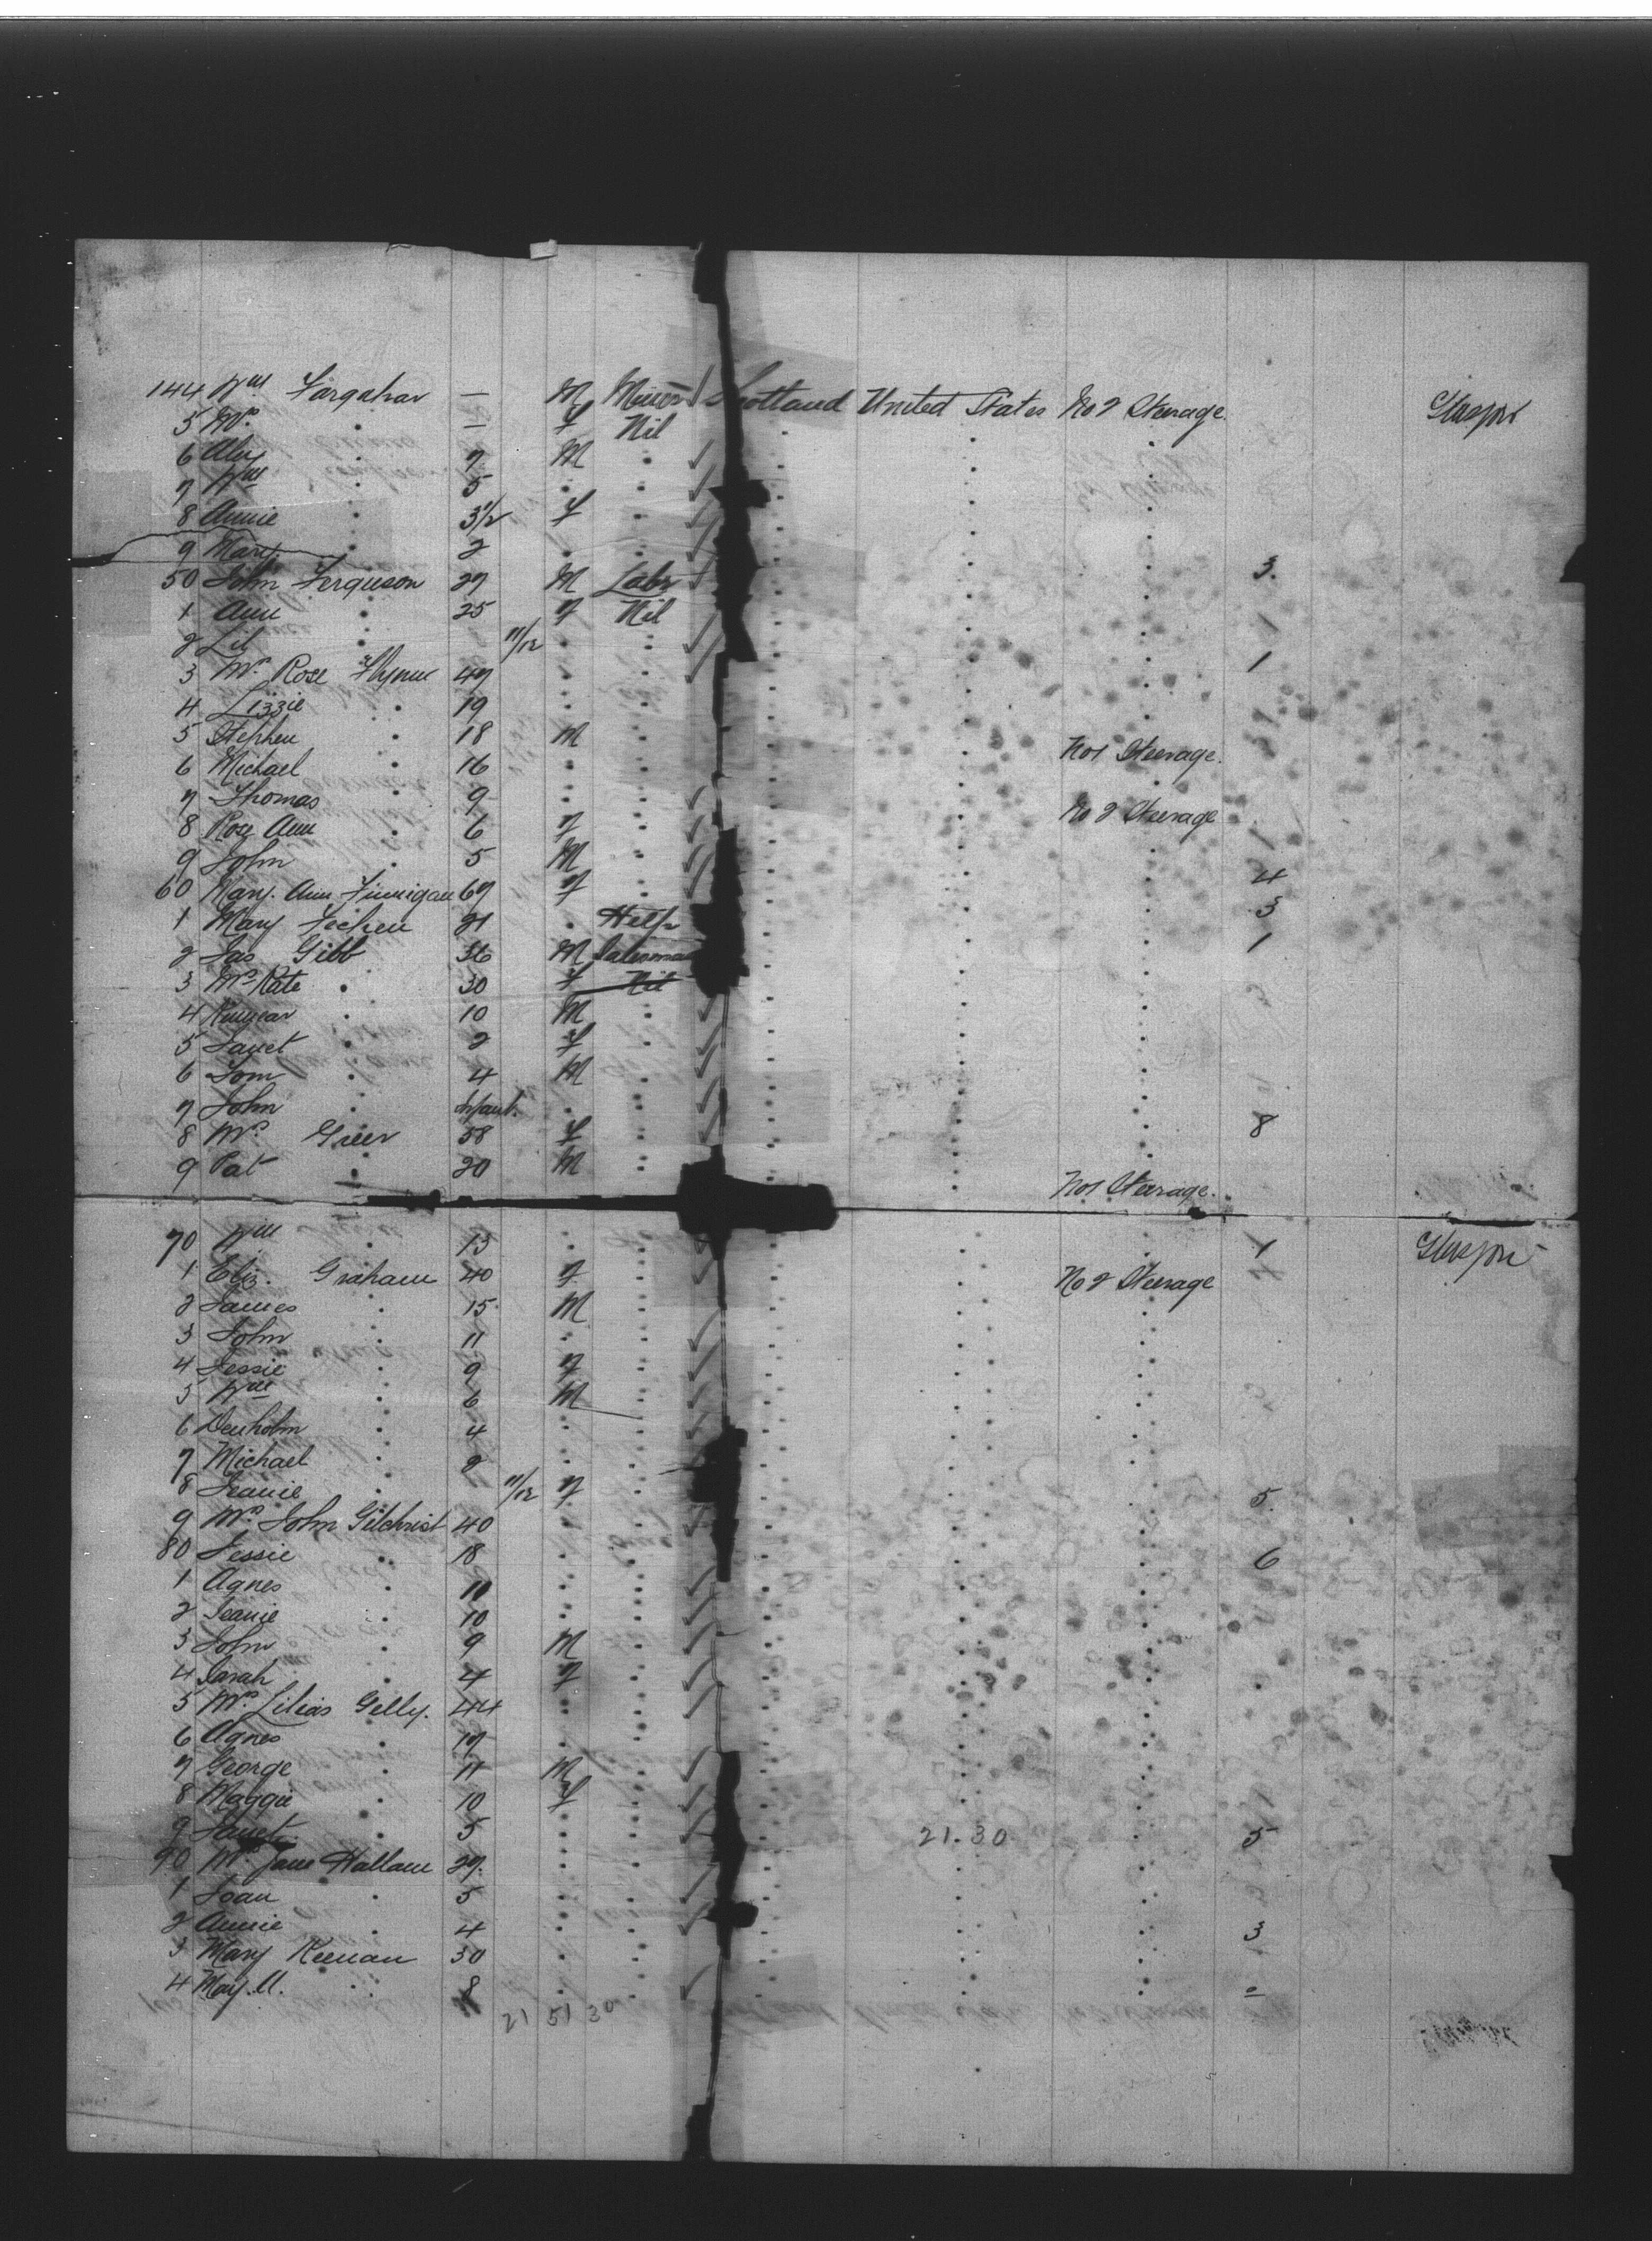 144 Wm Farqahar — M Miner Scotland United States No 2 Steerage Glasgow
5 Mrs " — f Nil
6 Alex " 7 M "
7 Wm " 5 " "
8 Annie " 3 1/2 f "
9 Mary " 2 " " 3.
50 John Ferguson 27 M Labr
1 Ann " 25 f Nil 1
2 Lil " 11/12 " "
3 Mrs Rose Flynn 47 " " 1
4 Lizzie " 19 " "
5 Stephen " 18 M " No 1 Steerage.
6 Michael " 16 " "
7 Thomas " 9 " " No 2 Steerage
8 Rose Ann " 6 f "
9 John " 5 M "
60 Mary Ann Finnigan 67 f " 4
1 Mary 21 " Help 3
2 Jas Gibb 36 M Salesman 1
3 Mrs Kate " 30 f Nil
4 Kinnear " 10 M "
5 Janet " 2 f "
6 Tom " 4 M "
7 John " Infant. " "
8 Mrs Greer 58 f " 8
9 Pat " 20 M " No 1 Steerage.
70 Wm " 13 " " 1 Glasgow
1 Eliz. Graham 40 f " No 2 Steerage
2 James " 15 M "
3 John " 11 " "
4 Jessie " 9 f "
5 Wm " 6 M "
6 Denholm " 4 " "
7 Michael " 2 " "
8 Jeanie " 11/12 f " 5.
9 Mrs John Gilchrist 40 " "
80 Jessie " 18 " " 6
1 Agnes " 11 " "
2 Jeanie " 10 " "
3 John " 9 M "
4 Sarah " 4 f "
5 Mrs Lilias Gelly. 44 " "
6 Agnes " 17 " "
7 George " 11 M "
8 Maggie " 10 f "
9 Janet " 5 " " 21.30 5
90 Mrs Jane Hallam 27. " "
1 Joan " 5 " "
2 Annie " 4 " " 3
3 Mary Keenan 30 " "
4 May. U. " 8 " "
21 51 30